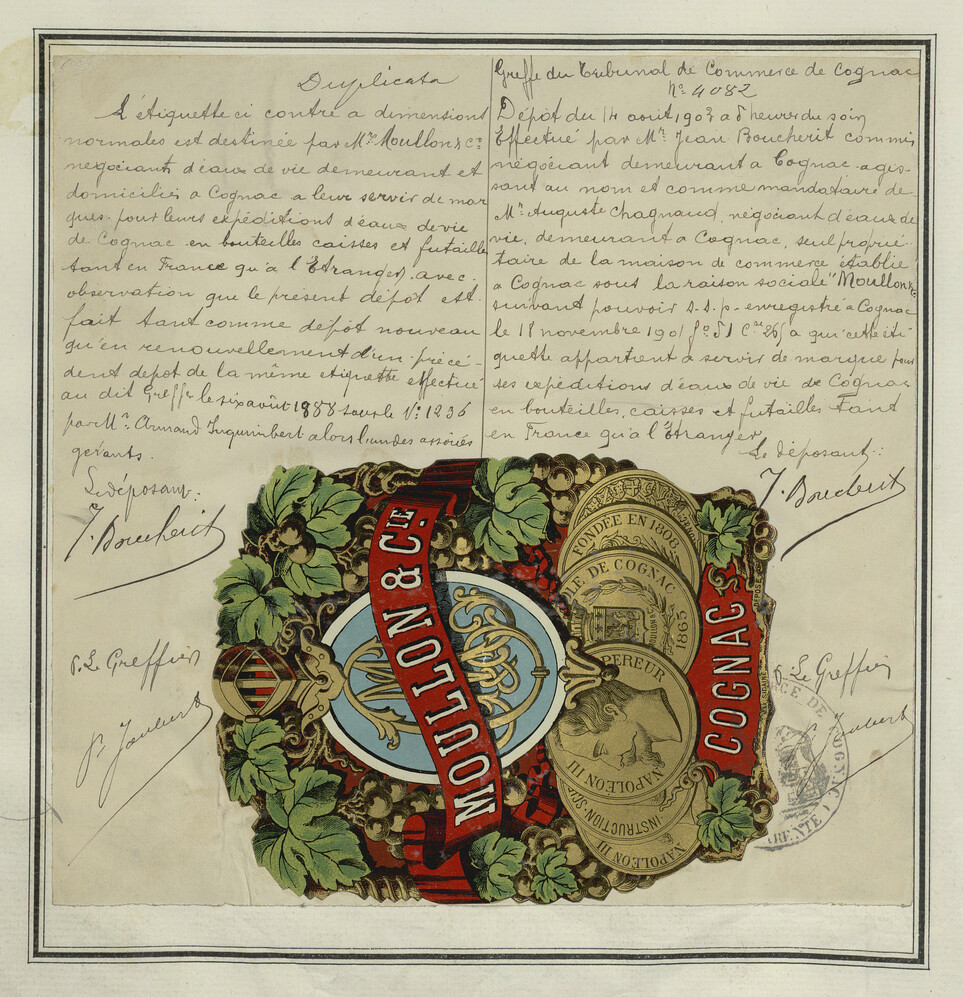 Duplicata
L'étiquette ci contre a dimensions
normales est destinée par Mrs Moullon & Cie
négociants d'eaux de vie demeurant et
domiciliés a Cognac a leur servir de mar
ques pour leurs expéditions d'eaux de vie
de Cognac en bouteilles caisses et futailles
tant en France qu'a l'Etranger, avec
observation que le présent dépôt est
fait tant comme dépôt nouveau
qu'en renouvellement d'un précé-
dent depot de la même etiquette effectué
au dit Greffe le six août 1888 sous le No 1236
par Mr Armand Inguimbert alors l'un des associés
gérants.
Le déposant:
J. Boucherit
p. Le Greffier
Greffe du Tribunal de Commerce de Cognac
No 4082
Dépôt du 14 aout 1903 a 5 heures du soir
Effectué par Mr Jean Boucherit commis
négociant demeurant a Cognac agis-
sant au nom et comme mandataire de
Mr Auguste Chagnaud, négociant d'eaux de
vie, demeurant a Cognac, seul proprié-
taire de la maison de commerce établie
a Cognac sous la raison sociale "Moullon &
suivant pouvoir s.s.p. enregistré a Cognac
le 18 novembre 1901 fo 51 Cse 265 a qui cette éti
quette appartient a servir de marque pour
ses expéditions d'eaux de vie de Cognac
en bouteilles, caisses et futailles tant
en France qu'a l'Etranger
Le déposant:
J. Boucherit
p. Le Greffier
MOULLON & CIE
FONDÉE EN 1808
DE COGNAC
1865
NAPOLEON III EMPEREUR
NAPOLEON III
INSTRUCTION
COGNAC
DÉPOSÉ